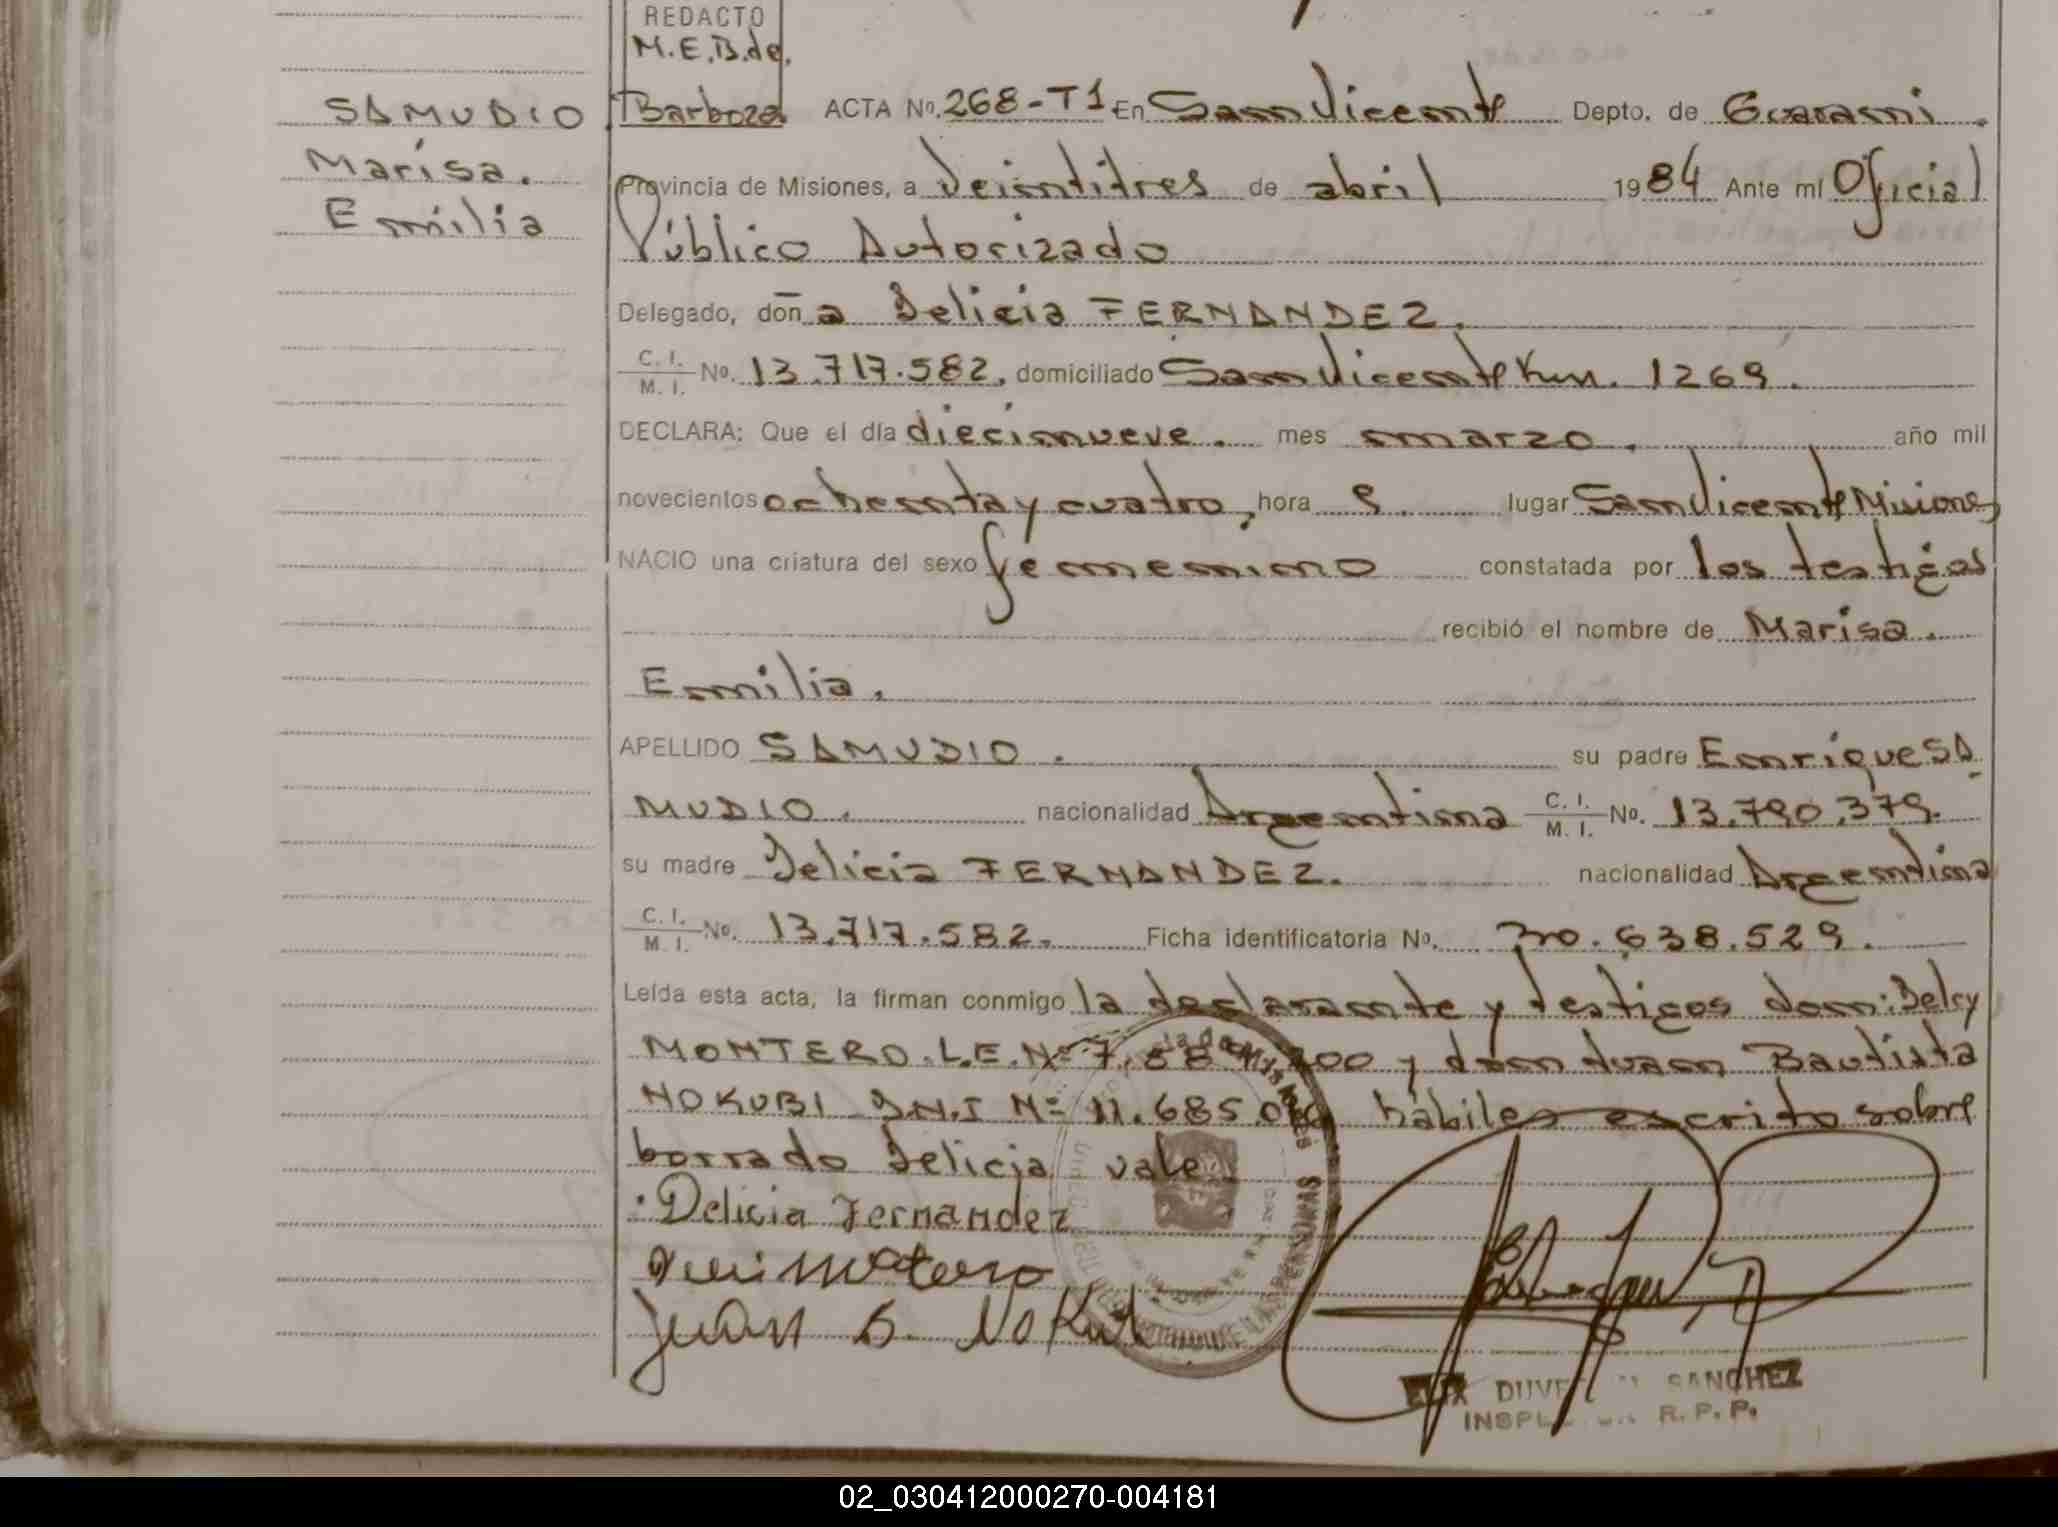 REDACTO
M.E.B.de.
Barboza
SAMUDIO
Marisa.
Emilia
ACTA No. 268-T1 En San Vicente Depto. de Guarani.
Provincia de Misiones, a Veintitres de abril 1984 Ante mI Oficial
Público Autorizado
Delegado, don̄ a Delicia FERNANDEZ.
C. I. / M. I. No. 13.717.582, domiciliado San Vicente Km. 1269.
DECLARA: Que el día diecinueve. mes marzo. año mil
novecientos ochenta y cuatro, hora lugar San Vicente Misiones
NACIO una criatura del sexo femenino constatada por los testigos
recibió el nombre de Marisa.
Emilia.
APELLIDO SAMUDIO. su padre Enrique SA
MUDIO. nacionalidad Argentina C. I. / M. I. No. 13.790.379.
su madre Delicia FERNANDEZ. nacionalidad Argentina
C. I. / M. I. No. 13.717.582. Ficha identificatoria No. 30.638.529.
Leída esta acta, la firman conmigo la declarante y testigos don: Delcy
MONTERO. L.E. Nº 7.58 200 y don Juan Bautista
NOKUBI D.N.I Nº 11.685.0 hábiles escrito sobre
borrado Delicia vale
Delicia Fernandez
Juan B.
SANCHEZ
R. P. P.
02_030412000270-004181